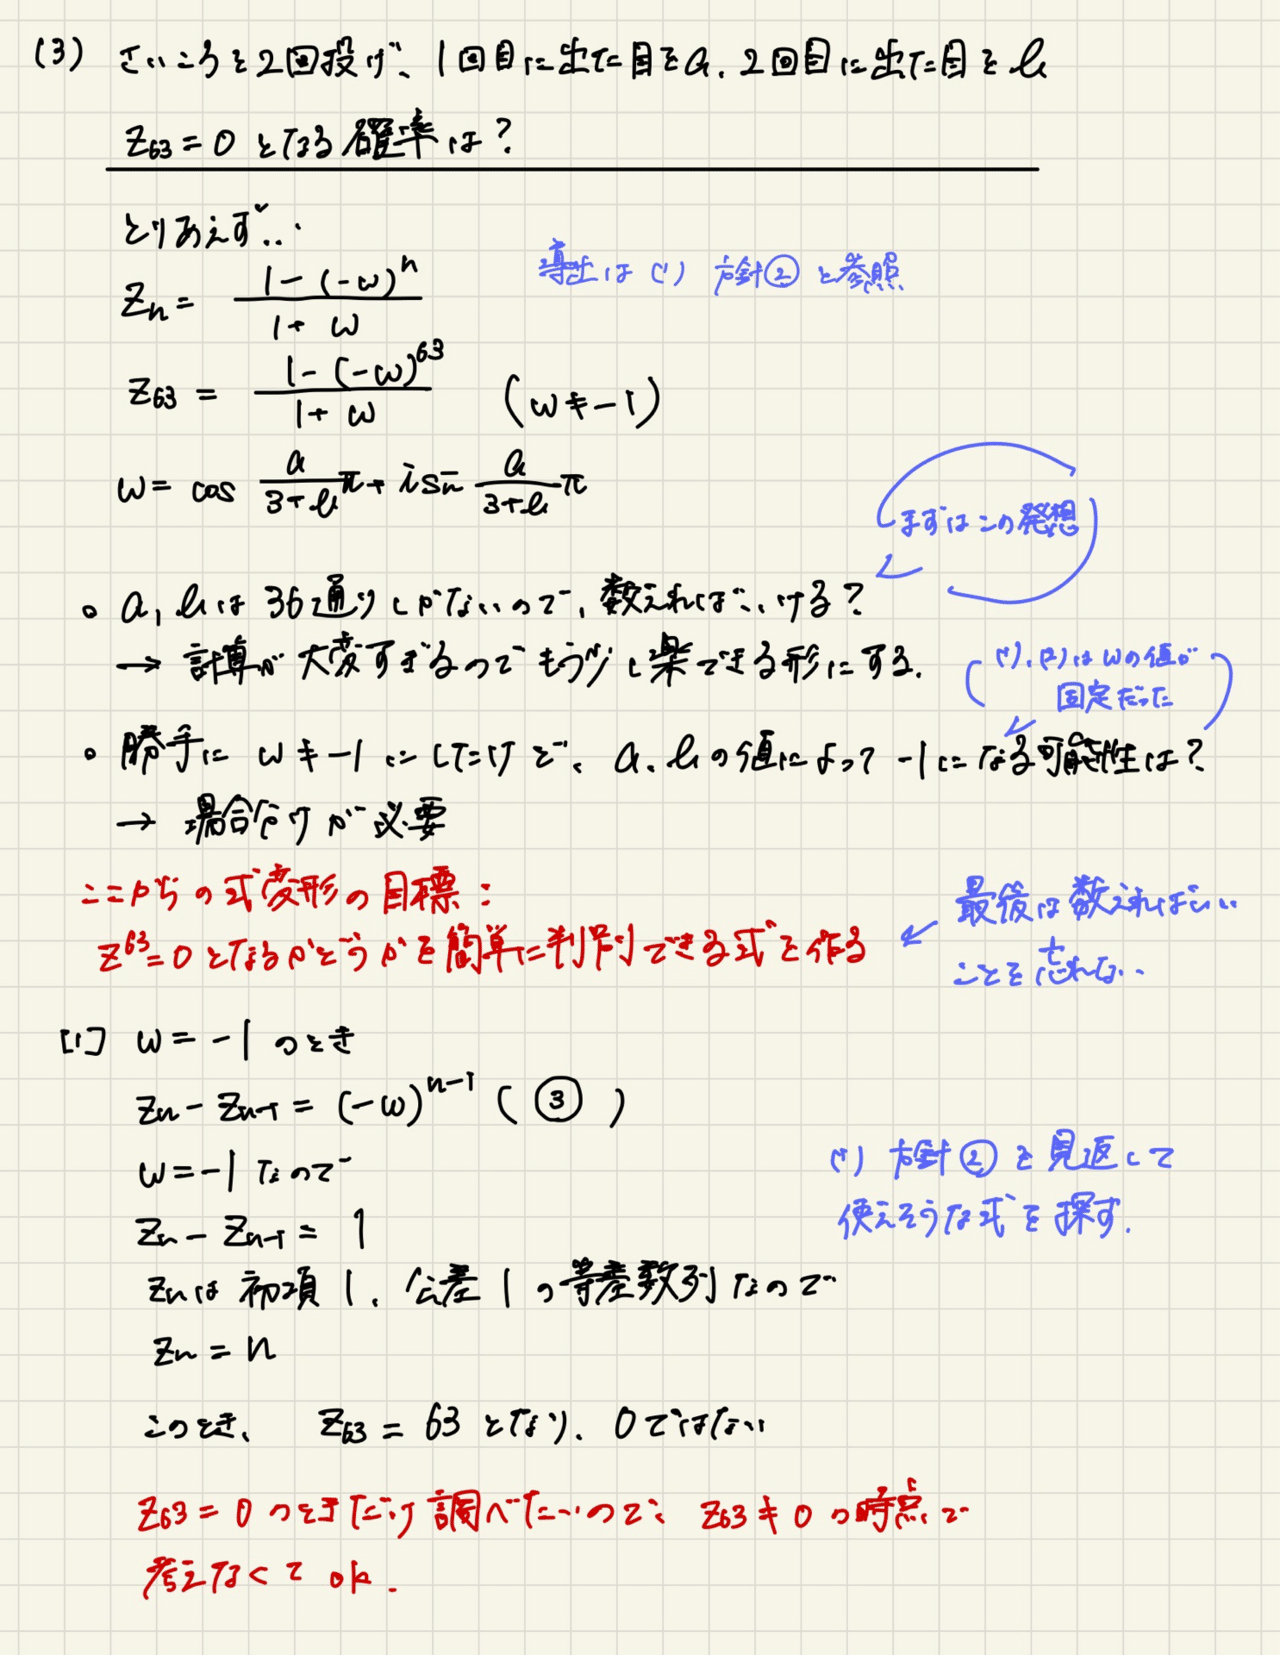 (3) さいころを2回投げ、1回目に出た目をa、2回目に出た目をb
z63 = 0 となる確率は?
とりあえず...
zn = (1 - (-ω)^n) / (1 + ω)
導出は(1) 方針② を参照
z63 = (1 - (-ω)^63) / (1 + ω) (ω≠-1)
ω = cos a/(3+b) π + i sin a/(3+b) π
まずはこの発想
○ a, bは 36通りしかないので、数えればいける?
→ 計算が大変すぎるのでもう少し楽できる形にする.
(1), (2)は ωの値が
固定だった
○ 勝手に ω≠-1 にしたけど、a、bの値によって -1になる可能性は?
→ 場合分けが必要
ここからの式変形の目標:
z^63=0 となるかどうかを簡単に判別できる式を作る
最後は数えればいい
ことを忘れない.
[1] ω = -1 のとき
zn - zn-1 = (-ω)^n-1 ( ③ )
ω = -1 なので
zn - zn-1 = 1
(1) 方針② を見返して
使えそうな式を探す.
znは 初項 1、公差 1 の等差数列なので
zn = n
このとき、 z63 = 63 となり、0ではない
z63 = 0 のときだけ調べたいので、z63≠0 の時点で
考えなくて ok.